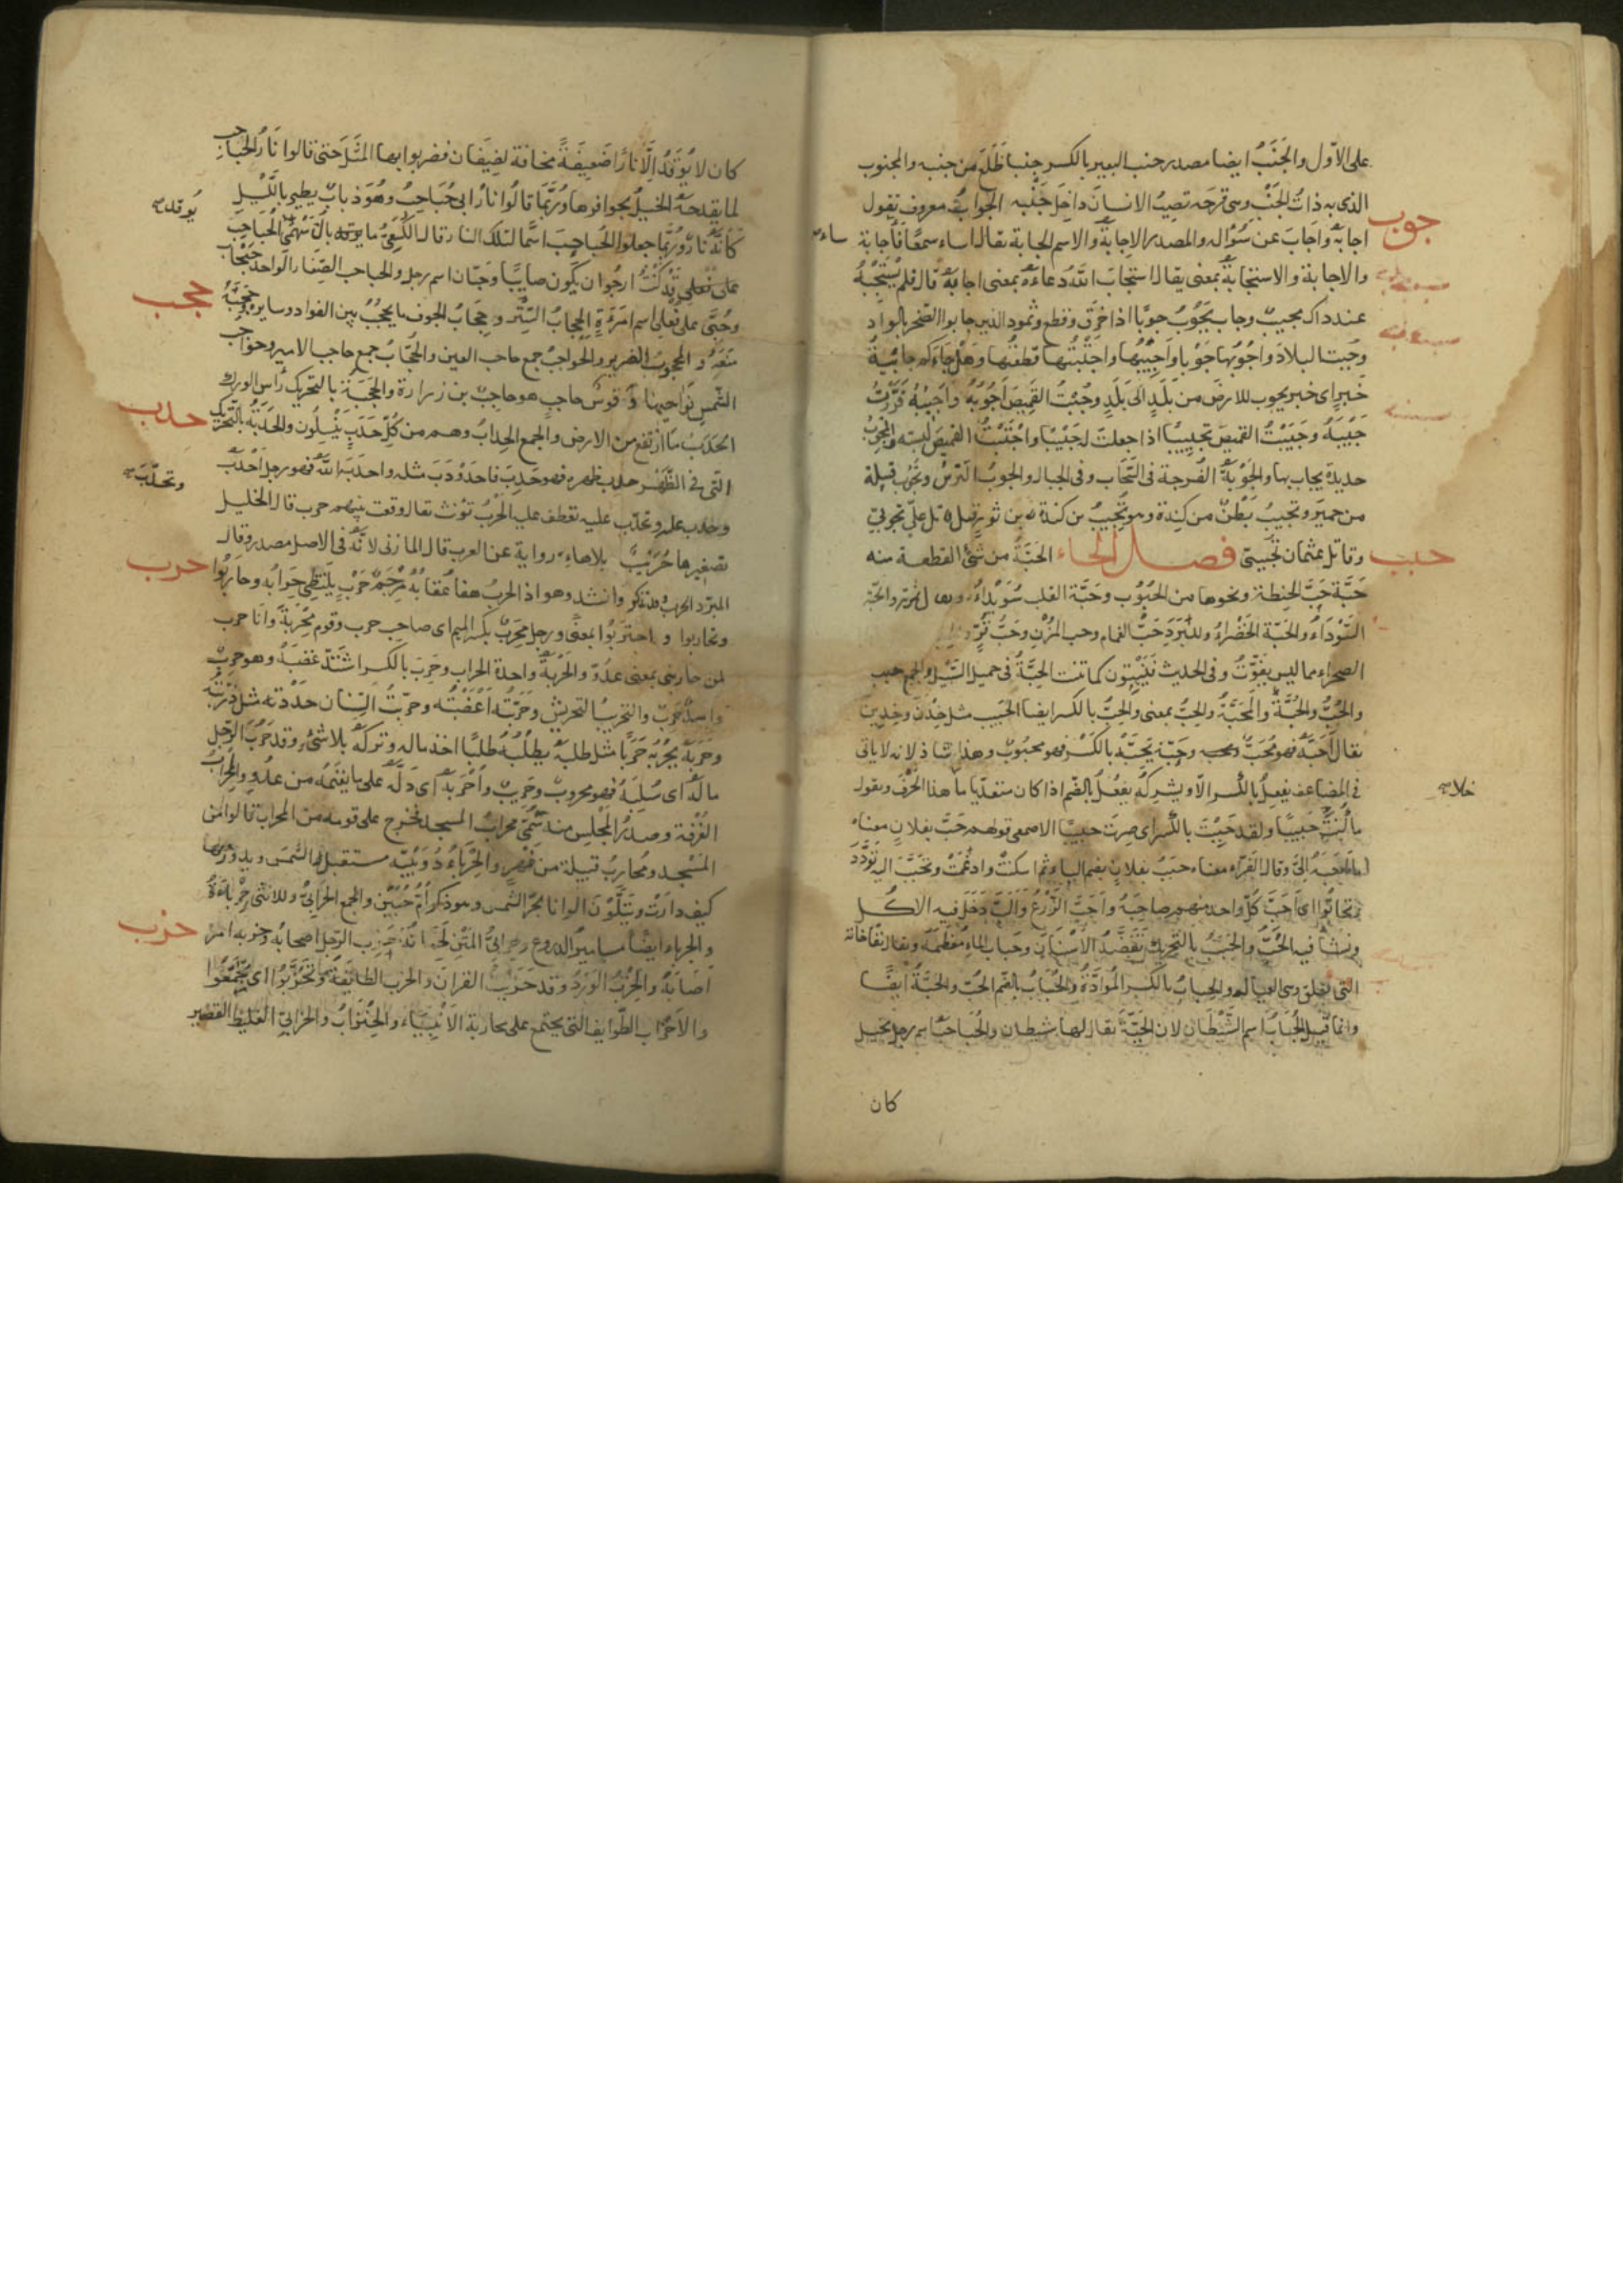 على الأوّل والجَنَبُ ايضا مصدر جنب البعير بالكسر جنبا ظَلَعَ من جنبه والمجنوب
الذي به ذاتُ الجَنْبِ وهى قرحَة تصيبُ الانسانَ داخِلَ جَنْبه الجوابُ معروف تقول
جوب
اجابهُ واجَابَ عن سُؤاله والمصدر الاِجابة والاسم الجابة يقال اساء سمعًا فأجابة
ساء
والاجابة والاستجابة بمعنى يقال استجابَ اللهُ دعاءَهُ بمعنى اجابهُ قال فلم يَسْتَجِبْهُ
عند داك مجيبٌ وجاب يَجُوبُ جوبًا اذا خَرَقَ وقطع وثمود الذين جابوا الصّخر بالواد
وجُبتُ البلادَ واَجُوبُها جَوْبا واَجِيبُهَا واجْتَبْتُها قطعتُها وهَلْ جَاءَكم جايبةُ
خَبرٍ اى خبر يجوب الارضَ من بَلَدٍ الى بَلَدٍ وجُبْتُ القَمِيصَ اَجُوبُهُ واَجِيبُهُ قَوَّرْتُ
جَيْبَهُ وجَيَّبْتُ القميصَ تجييبًا اذا جعلتَ له جَيْبًا واجْتَبْتُ القميصَ لَبِسته والمِجْوَبُ
حديدة يجاب بها والجَوْبَةُ الفُرجة فى السَّحَاب وفى الجبال والجوبُ التّرسُ وتجُوبُ قبيلة
من حِميَر وتُجيبُ بَطْنٌ من كِندة وهو تُجِيبُ بن كندة بن ثور
حبب
وقاتل عثمان تُجيبىّ فصـل الحاء الحَبّةُ من شَىْءٍ القطعـة منه
حَبَّة حَبُّ الحنطة ونحوها من الحُبُوب وحَبَّة القلب سُوَيْداؤُه
السَّوْدَاءُ والحَبّة الخَضْراءُ وللبَرَدِ حَبُّ الغمام وحب المُزْنِ وحَبُّ قُرٍّ
الصحراء مما ليس بقُوتٍ وفى الحديث فَيَنْبِتُون كما تنبت الحِبَّةُ فى حميل السَّيْل والجمع حبب
والحُبُّ والحُبَّةُ والمَحَبَّةُ والحِبُّ بمعنى والحِبُّ بالكسر ايضا الحَبِيب مثل خِدْنٍ وخَدِينٍ
يقال اَحَبَّهُ فهو مُحَبٌّ وحَبّه يَحِبُّهُ بالكَسْر فهو محبُوبٌ وهذا شاذ لانه لا ياتى
فى المضاعف يفعِلُ بالكسر الّا ويشركهُ يفعُلُ بالضّم اذا كان متعدّيا ما هذا الحَرْفَ ويقول
خلا
ما كُنْتَ حبيبًا ولقد حَبِبْتَ بالكَسر اى صِرتَ حبيبًا الاصمعى قولهم حَبَّ بفلانٍ معناه
ما اَحَبَّه اِلىَّ وقال الفرّاء معناه حبُبَ بفلانٍ بضم الباء ثم اسكنتْ وادغمتْ وتحبَّبَ اليه تودَّدَ
وتحابُّوا اى اَحَبَّ كُلّ واحد منهم صاحِبَهُ واَحَبَّ الزَّرْعُ واَلبَّ دَخَلَ فيه الاكل
ونشأ فيه الحُبُّ والحَبَبُ بالتحريك تَنَضُّدُ الاسْنانِ وحَباب الماء مُعْظمَهُ ويقال نفّاخاته
التى تعلوه وهى اليعاليل والحِبابُ بالكسر المُوادَّةُ والحُبَابُ بالضّم الحُبّ والحَيَّةُ ايضًا
وانما قيل الحُبَابُ اسم الشَّيْطان لان الحَيَّةَ يقال لها شيطان والحُبَاحبُ اسم رجل بخيل
كان
كان لا يُوقِدُ اِلَّا نارًا ضَعِيفَةً مخافة الضِيفَان فضربوا بها المثَلَ حتى قالوا نَارُ الحُبَاحِب
لما تقدحهُ الخيلُ بحوافرها وربَّما قالُوا نارُ ابى حُبَاحِبَ وهُوَ ذبابٌ يطير باللَّيْلِ
كأنّهُ نارٌ وربَّما جعلوا الحُباحِبَ اسمًا لتلك النار قال الكُسَعىُّ ما بالُ سَهْمى يوقد الحُبَاحِبَا
يُوقد
قد كُنْتُ ارجُوا ان يكون صايبًا وحَبّان اسم رجل والحباحب الصِّغَار الواحد حَبْحَابٌ
وحُبَّى على فُعْلى اسم امرَءَةٍ الحِجَابُ السِّتْر وحِجَابُ الجوف ما يحجُبُ بين الفواد وسايره
حجب
والمحجوبُ الضرير والحواجبُ جمع حاجب العين والحُجّابُ جمع حاجب الامير وحواجب
الشّمسِ نَواحيها وقوسُ حاجبٍ هو حاجِبُ بن زرارة والحَجَبَةُ بالتحريك رأس الورك
حدب
الحَدَبُ ما ارْتَفَعَ من الارض والجمع الحِدابُ وهم من كُلّ حَدَبٍ يَنْسِلُون والحَدَبَةُ بالتّحريك
التى فى الظَّهْـر حدب ظهره فهو حَدِبٌ فاحدَوْدَبَ مثله واحدَبَهُ اللهُ فهو رجل اَحْدَبُ
وتحدّبَ
وحدب عليه وتحدّب عليه تعطف عليه الحَرْبُ تؤنث يقال وقعت بينهم حرب قال الخليل
تصغيرها حُرَيْبٌ بلا هاءٍ رواية عن العرب قال المازنى لانّهُ فى الاصل مصدر وقال
حرب
المبرّد الحربُ قد تذكر وانشد وهو اذا الحربُ هفا عُقابُهُ مِرْجَمُ حَرْبٍ يَلْتَظِى حِرَابُه وحاربُوا
وتحاربوا و احتربُوا بمعنًى ورجل مِحْرَبٌ بكسر الميم اى صاحب حرب وقوم مِحْرَبَةٌ وانا حرب
لمن حاربنى بمعنى عدُوّ والحَرْبَةُ واحدة الحِراب وحَرِبَ بالكسر اشْتَدّ غضبَهُ وهو حرِبٌ
واسدٌ حَرِبٌ والتحريبُ التحريشُ وحَرَّبتُه اَغْضَبْتُه وحرّبتُ السِّنان حدّدته مثل ذرّبتُه
وحَرَبَهُ يحْرُبُهُ حَرَبًا مثل طلبهُ يطلُبُهُ طَلبًا اخذ ماله وتركهُ بلا شىءٍ وقد حُرِبَ الرَّجل
مالَهُ اى سُلِبَهُ فهو محروبٌ وحَرِيبٌ واَحْرَبَهُ اى دَلَّهُ على ما يغنَمُه من عدُوٍّ والمِحْرابُ
الغُرْفَة وصدرُ المَجْلِس منه سُمّى محرابُ المسجد فخرج على قومه من المحراب قالوا من
المَسْجِد ومُحاربٌ قبيلة من فِهْرٍ والحِرْباءُ دُوَيْبّة مستقبل الشّمس ويدور معها
كيف دارَتْ ويَتَلَوَّنُ الوانا بحرّ الشمس وهو ذكر اُمّ حُبَيْن والجمع الحَرَابِىّ وللانثى حِرْباءَةٌ
والحِرباء ايضًا مسامير الدروع وحرابىّ المَتْن لَحَماتُه حِزب الرّجل اصحابُه وحزبه امر
حزب
اَصَابَهُ والحِزْبُ الوِرْدُ وقد حَزّبتُ القرانَ والحزب الطايفَةُ وتحزَّبُوا اى تجَمَّعُوا
والاَحْزَاب الطّوايف التى يجتمع على محاربة الاَنْبِيَاء والحِنْزَابُ والحزابِىّ الغليظ القصير